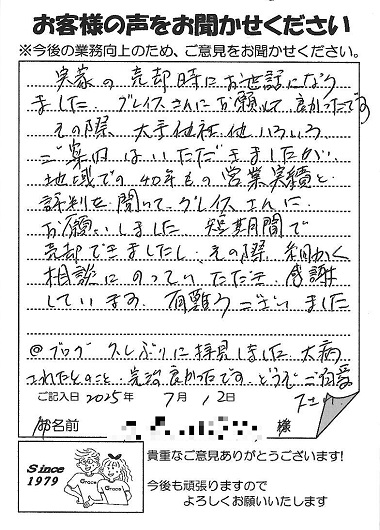 お客様の声をお聞かせください
※今後の業務向上のため、ご意見をお聞かせください。
実家の売却時にお世話になり
ました グレイスさんにお願いして良かったです
その際 大手他社 他 いろいろ
ご案内はいただきましたが、
地域での40年もの営業実績と
評判を聞いて グレイスさんに
お願いしました 短期間で
売却できましたし、その際 細かく
相談にのっていただき 感謝
しています 有難うございました
@ブログ 久しぶりに拝見しました 大病
されたとのこと 完治 良かったです どうぞ ご自愛
下さい
ご記入日 2025年 7月 12日
お名前 様
貴重なご意見ありがとうございます!
今後も頑張りますので
よろしくお願いいたします
Since
1979
Grace
Grace